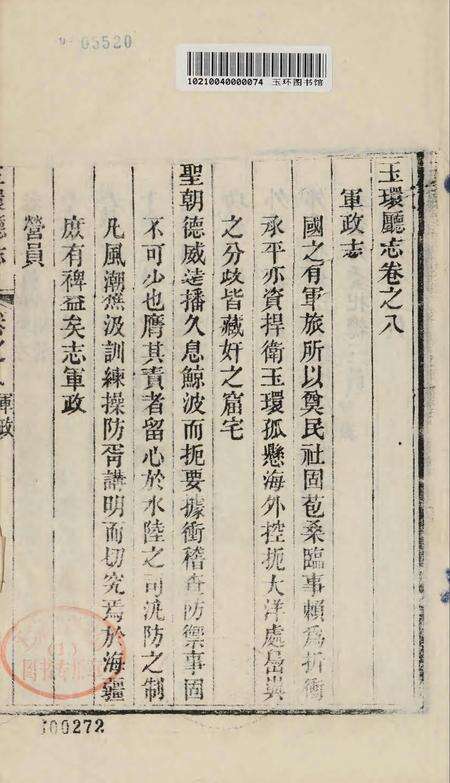 05520
10210040000074 玉环图书馆
玉環廳志卷之八
軍政志
國之有軍旅所以奠民社固苞桑臨事賴為折衝
承平亦資捍衛玉環孤懸海外控扼大洋處島嶴
之分歧皆藏奸之窟宅
聖朝德威遠播久息鯨波而扼要據衝稽查防禦事固
不可少也膺其責者留心於水陸之司汛防之制
凡風潮礁汲訓練操防胥講明而切究焉於海疆
庶有裨益矣志軍政
營員
玉環廳志 卷之八 軍政
100272